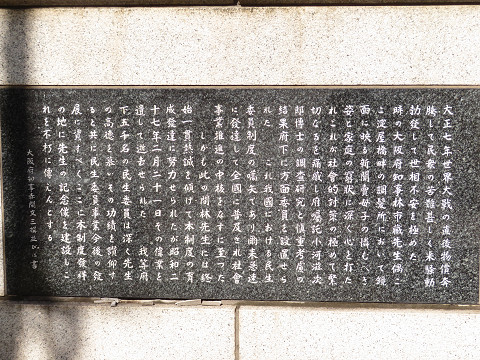 大正七年世界大戦の直後物価奔
騰して民衆の苦難甚しく米騒動
勃発して世相不安を極めた
時の大阪府知事林市蔵先生偶こ
淀屋橋畔の調髪所において鏡
面に映る新聞売母子の傷ましき
姿と家庭の窮状に深く心を打た
れこれが社会的対策の極めて緊
切なるを痛感し府嘱託小河滋次
郎博士の調査研究と慎重考慮の
結果府下に方面委員を設置せら
れた これ我國における民生
委員制度の嚆矢であり爾来急速
に発達して全國に普及され社会
事業推進の中核をなすに至つた
しかも此の間林先生には終
始一貫熱誠を傾けて本制度の育
成発達に努力せられたが昭和二
十七年二月二十一日その偉業を
遺して逝去せられた 我等府
下五千名の民生委員は深く先生
の高徳を慕いその功績を讃仰す
ると共に民生委員事業今後の発
展に資すべくここに本制度発祥
の地に先生の記念像を建設しこ
れを不朽に傳えんとする
大阪府知事赤間文三撰並びに書